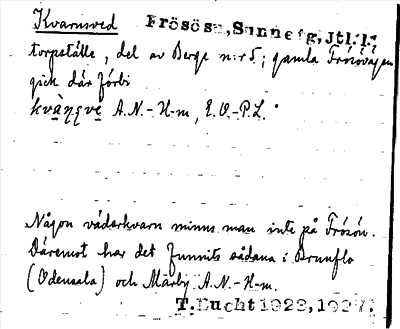 Kvarnsved Frösön, Sunne tg, Jtl. l.
torpställe, del av Berge n:r 5; gamla Frösövägen
gick där förbi
A.N.-H-m, E.O.-P.L.
Någon väderkvarn minns man inte på Frösön.
Däremot har det funnits sådana i Brunflo
(Odensala) och Marby A.N.-H-m.
T. Lucht 1923, 1927.